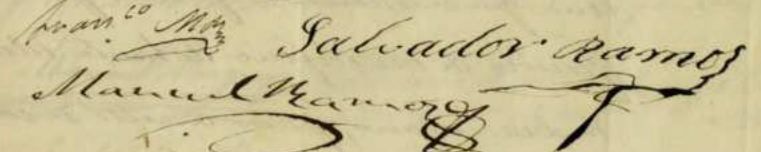 Fran.co Mora
Salvador Ramos
Manuel Ramos